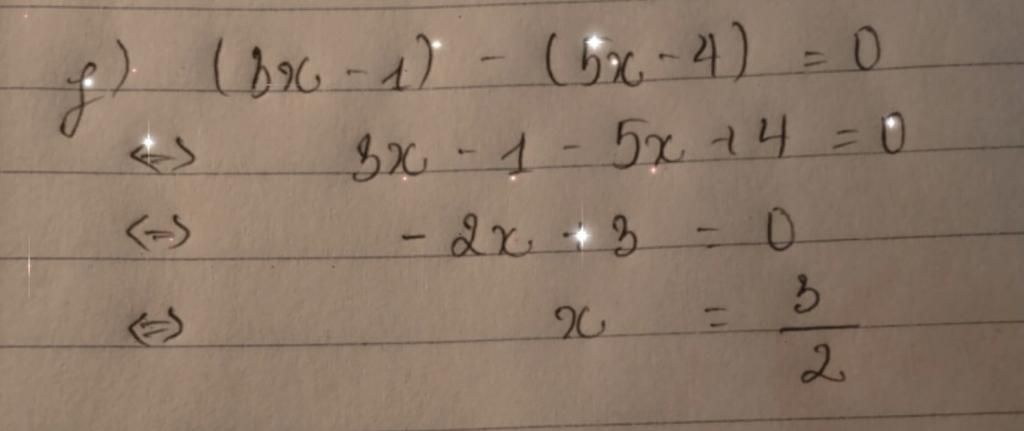 f) (3x - 1) - (5x - 4) = 0
<=> 3x - 1 - 5x + 4 = 0
<=> - 2x + 3 = 0
<=> x = 3/2